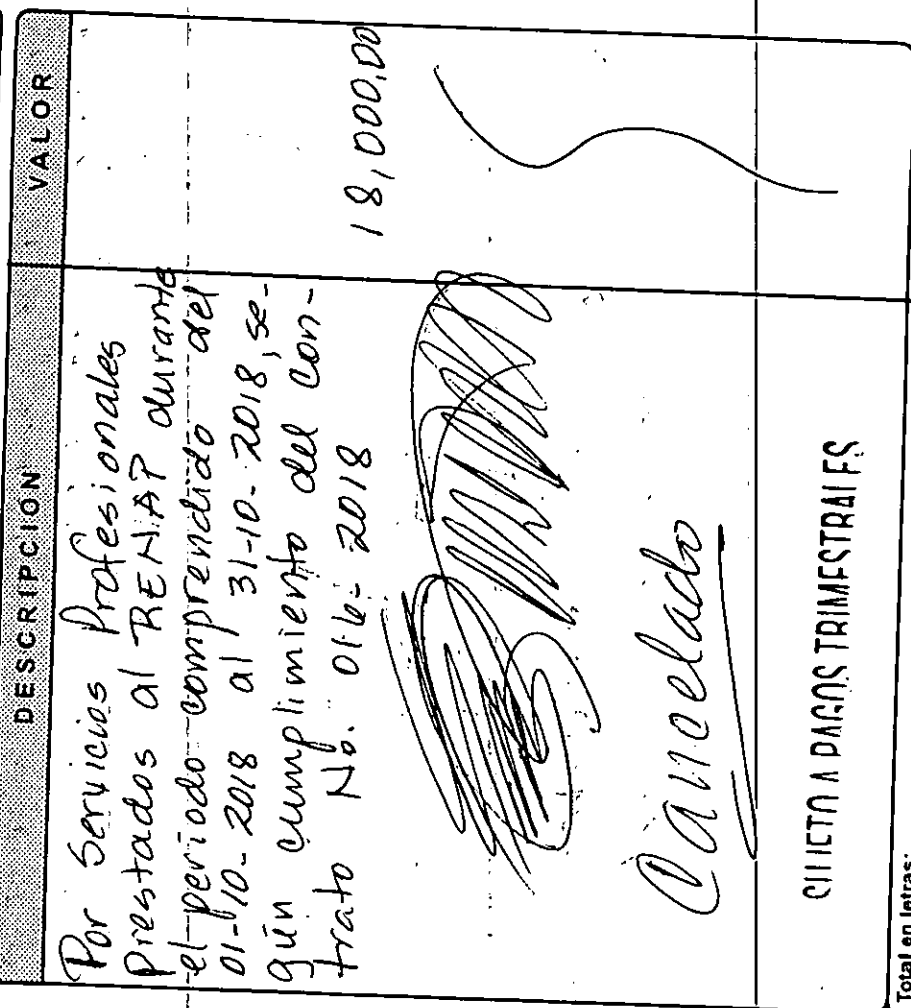 DESCRIPCION VALOR
Por Servicios Profesionales
Prestados al RENAP durante
el periodo comprendido del
01-10-2018 al 31-10-2018, se-
gún cumplimiento del con-
trato No. 016-2018 18,000.00
Cancelado
SUJETO A PAGOS TRIMESTRALES
Total en letras: